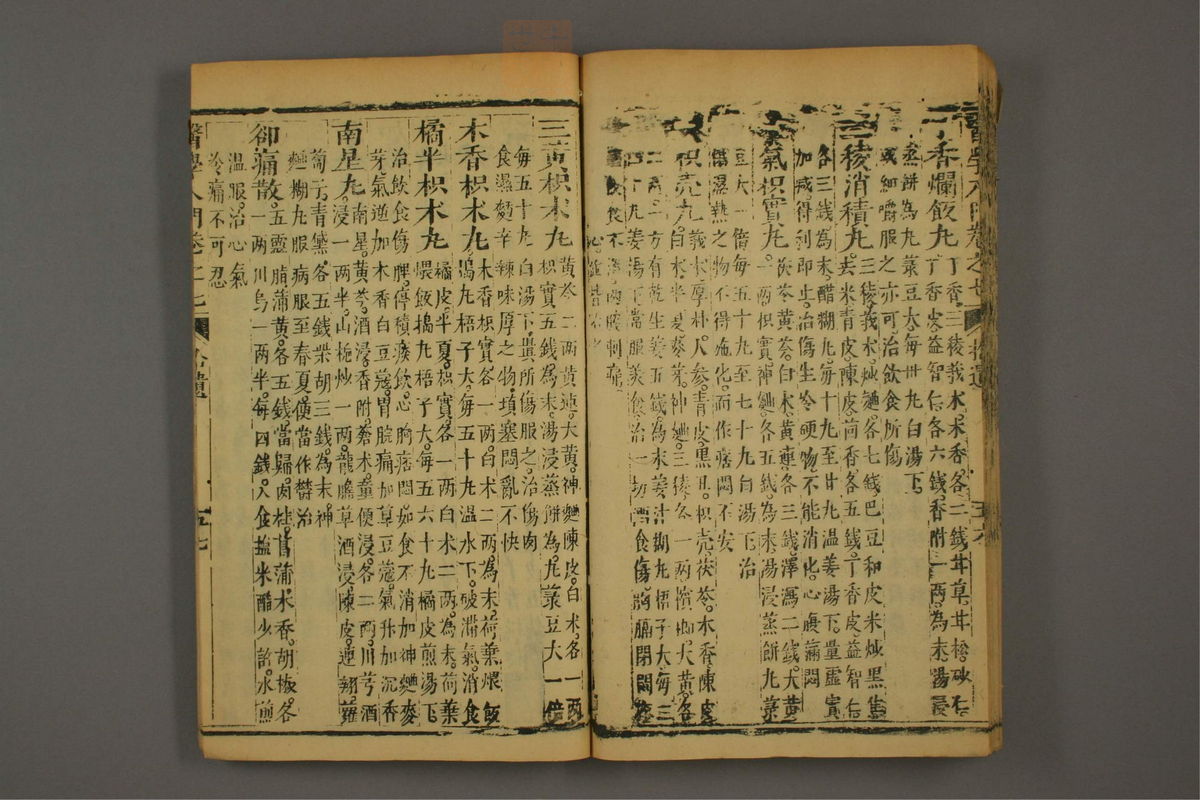 醫學入門卷之七 拾遺
丁香爛飯丸丁香三稜莪朮木香各二錢甘草甘松砂仁
丁香皮益智仁各六錢香附一兩為末湯浸
蒸餅為丸菉豆大每卅丸白湯下
或細嚼服之亦可治飲食所傷
三稜消積丸三稜莪朮炒麯各七錢巴豆和皮米炒黑焦
去米青皮陳皮茴香各五錢丁香皮益智仁
各三錢為末醋糊丸每十丸至廿丸溫姜湯下量虛實
加减得利即止治傷生冷硬物不能消化心腹滿悶
氣枳實丸茯苓黃芩白朮黃連各三錢澤瀉二錢大黃
一兩枳實神麯各五錢為末湯浸蒸餅丸菉
豆大一倍每五十丸至七十丸白湯下治
傷濕熱之物不得施化而作痞悶不安
枳壳丸莪朮厚朴人參青皮黑丑枳壳茯苓木香陳皮
白朮半夏麥芽神麯三稜各一兩檳榔大黃各
二兩一方有乾生姜五錢為末姜汁糊丸梧子大每三
四十丸姜湯下常服美食治一切酒食傷胸膈閉悶
飲食不消兩脇刺痛
三黃枳朮丸黃芩二兩黃連大黃神麯陳皮白朮各一兩
枳實五錢為末湯浸蒸餅為丸菉豆大一倍
每五十丸白湯下量所傷服之治傷肉
食濕麵辛辣味厚之物填塞悶亂不快
木香枳朮丸木香枳實各一兩白朮二兩為末荷葉煨飯
搗丸梧子大每五十丸溫水下破滯氣消食
橘半枳朮丸橘皮半夏枳實各一兩白朮二兩為末荷葉
煨飯搗丸梧子大每五六十丸橘皮煎湯下
治飲食傷脾停積痰飲心胸痞悶如食不消加神麯麥
芽氣逆加木香白豆蔻胃脘痛加草豆蔻氣升加沉香
南星丸南星黃芩酒浸香附蒼朮童便浸各二兩川芎酒
浸一兩半山梔炒一兩龍膽草酒浸陳皮連翹蘿
蔔子青黛各五錢柴胡三錢為末神
麯糊丸服病服至春夏僕當作鬱治
卻痛散五靈脂蒲黃各五錢當歸肉桂菖蒲木香胡椒各
一兩川烏一兩半每四錢入食鹽米醋少許水煎
溫服治心氣
冷痛不可忍
醫學入門卷之七 拾遺 五七